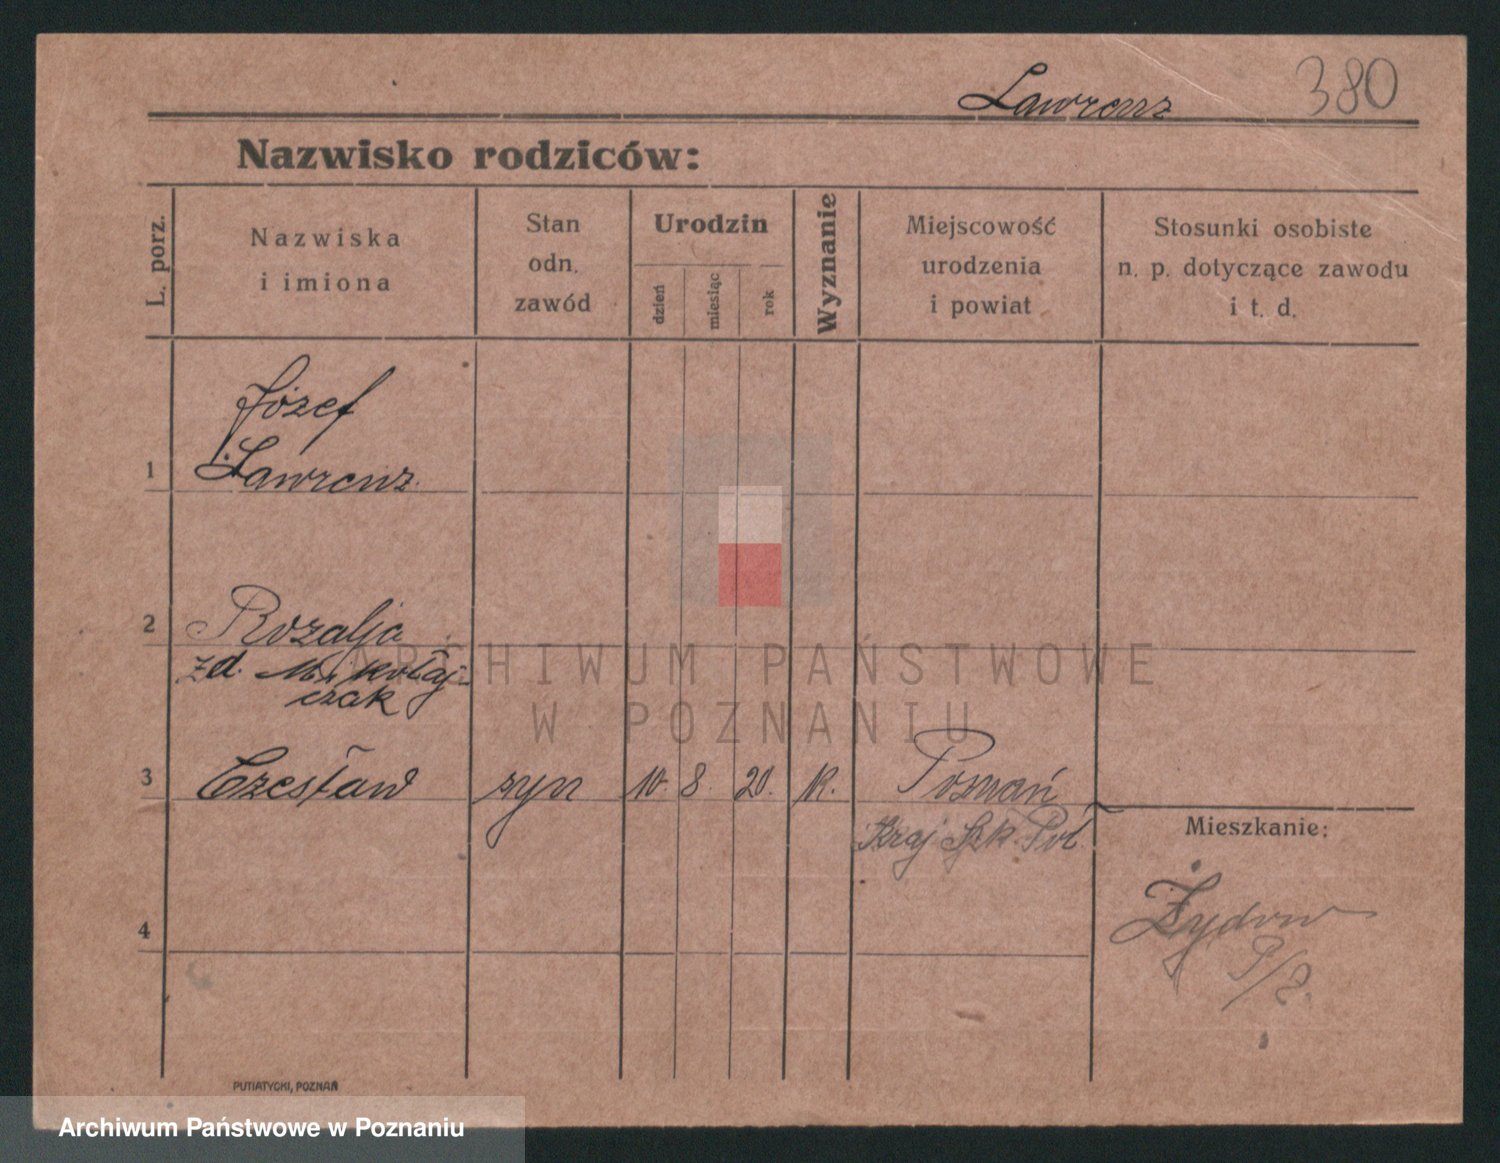 Lawrenz 380
Nazwisko rodziców:
L. porz.
Nazwiska
i imiona
Stan
odn.
zawód
Urodzin
dzień
miesiąc
rok
Wyznanie
Miejscowość
urodzenia
i powiat
Stosunki osobiste
n. p. dotyczące zawodu
i t. d.
Józef
1 Lawrenz
2 Rozalja
zd. Mikołaj-
czak
ARCHIWUM PAŃSTWOWE
W POZNANIU
3 Czesław syn 10. 8. 20. K. Poznań
Kraj Szk. Pol
Mieszkanie:
4
Żydowo
P/2.
PUTIATYCKI, POZNAŃ
Archiwum Państwowe w Poznaniu